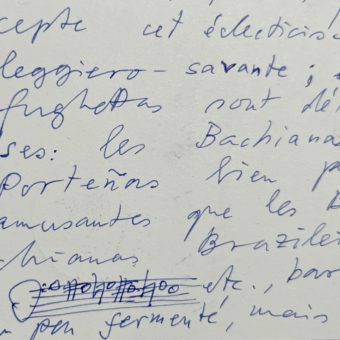 cepte cet éclecticis
leggiero-savante;
fughettas sont dé
ses: les Bachianas
Porteñas bien p
amusantes que les B
chianas Brazilei
etc., bar
peu fermenté, mais